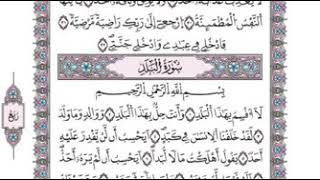 النَّفْسُ الْمُطْمَئِنَّةُ ارْجِعِي إِلَىٰ رَبِّكِ رَاضِيَةً مَرْضِيَّةً
فَادْخُلِي فِي عِبَادِي وَادْخُلِي جَنَّتِي
سُورَةُ الْبَلَدِ
بِسْمِ اللَّهِ الرَّحْمَٰنِ الرَّحِيمِ
لَا أُقْسِمُ بِهَٰذَا الْبَلَدِ وَأَنْتَ حِلٌّ بِهَٰذَا الْبَلَدِ وَوَالِدٍ وَمَا وَلَدَ
لَقَدْ خَلَقْنَا الْإِنْسَانَ فِي كَبَدٍ أَيَحْسَبُ أَنْ لَنْ يَقْدِرَ عَلَيْهِ
أَحَدٌ يَقُولُ أَهْلَكْتُ مَالًا لُبَدًا أَيَحْسَبُ أَنْ لَمْ يَرَهُ أَحَدٌ
ربع